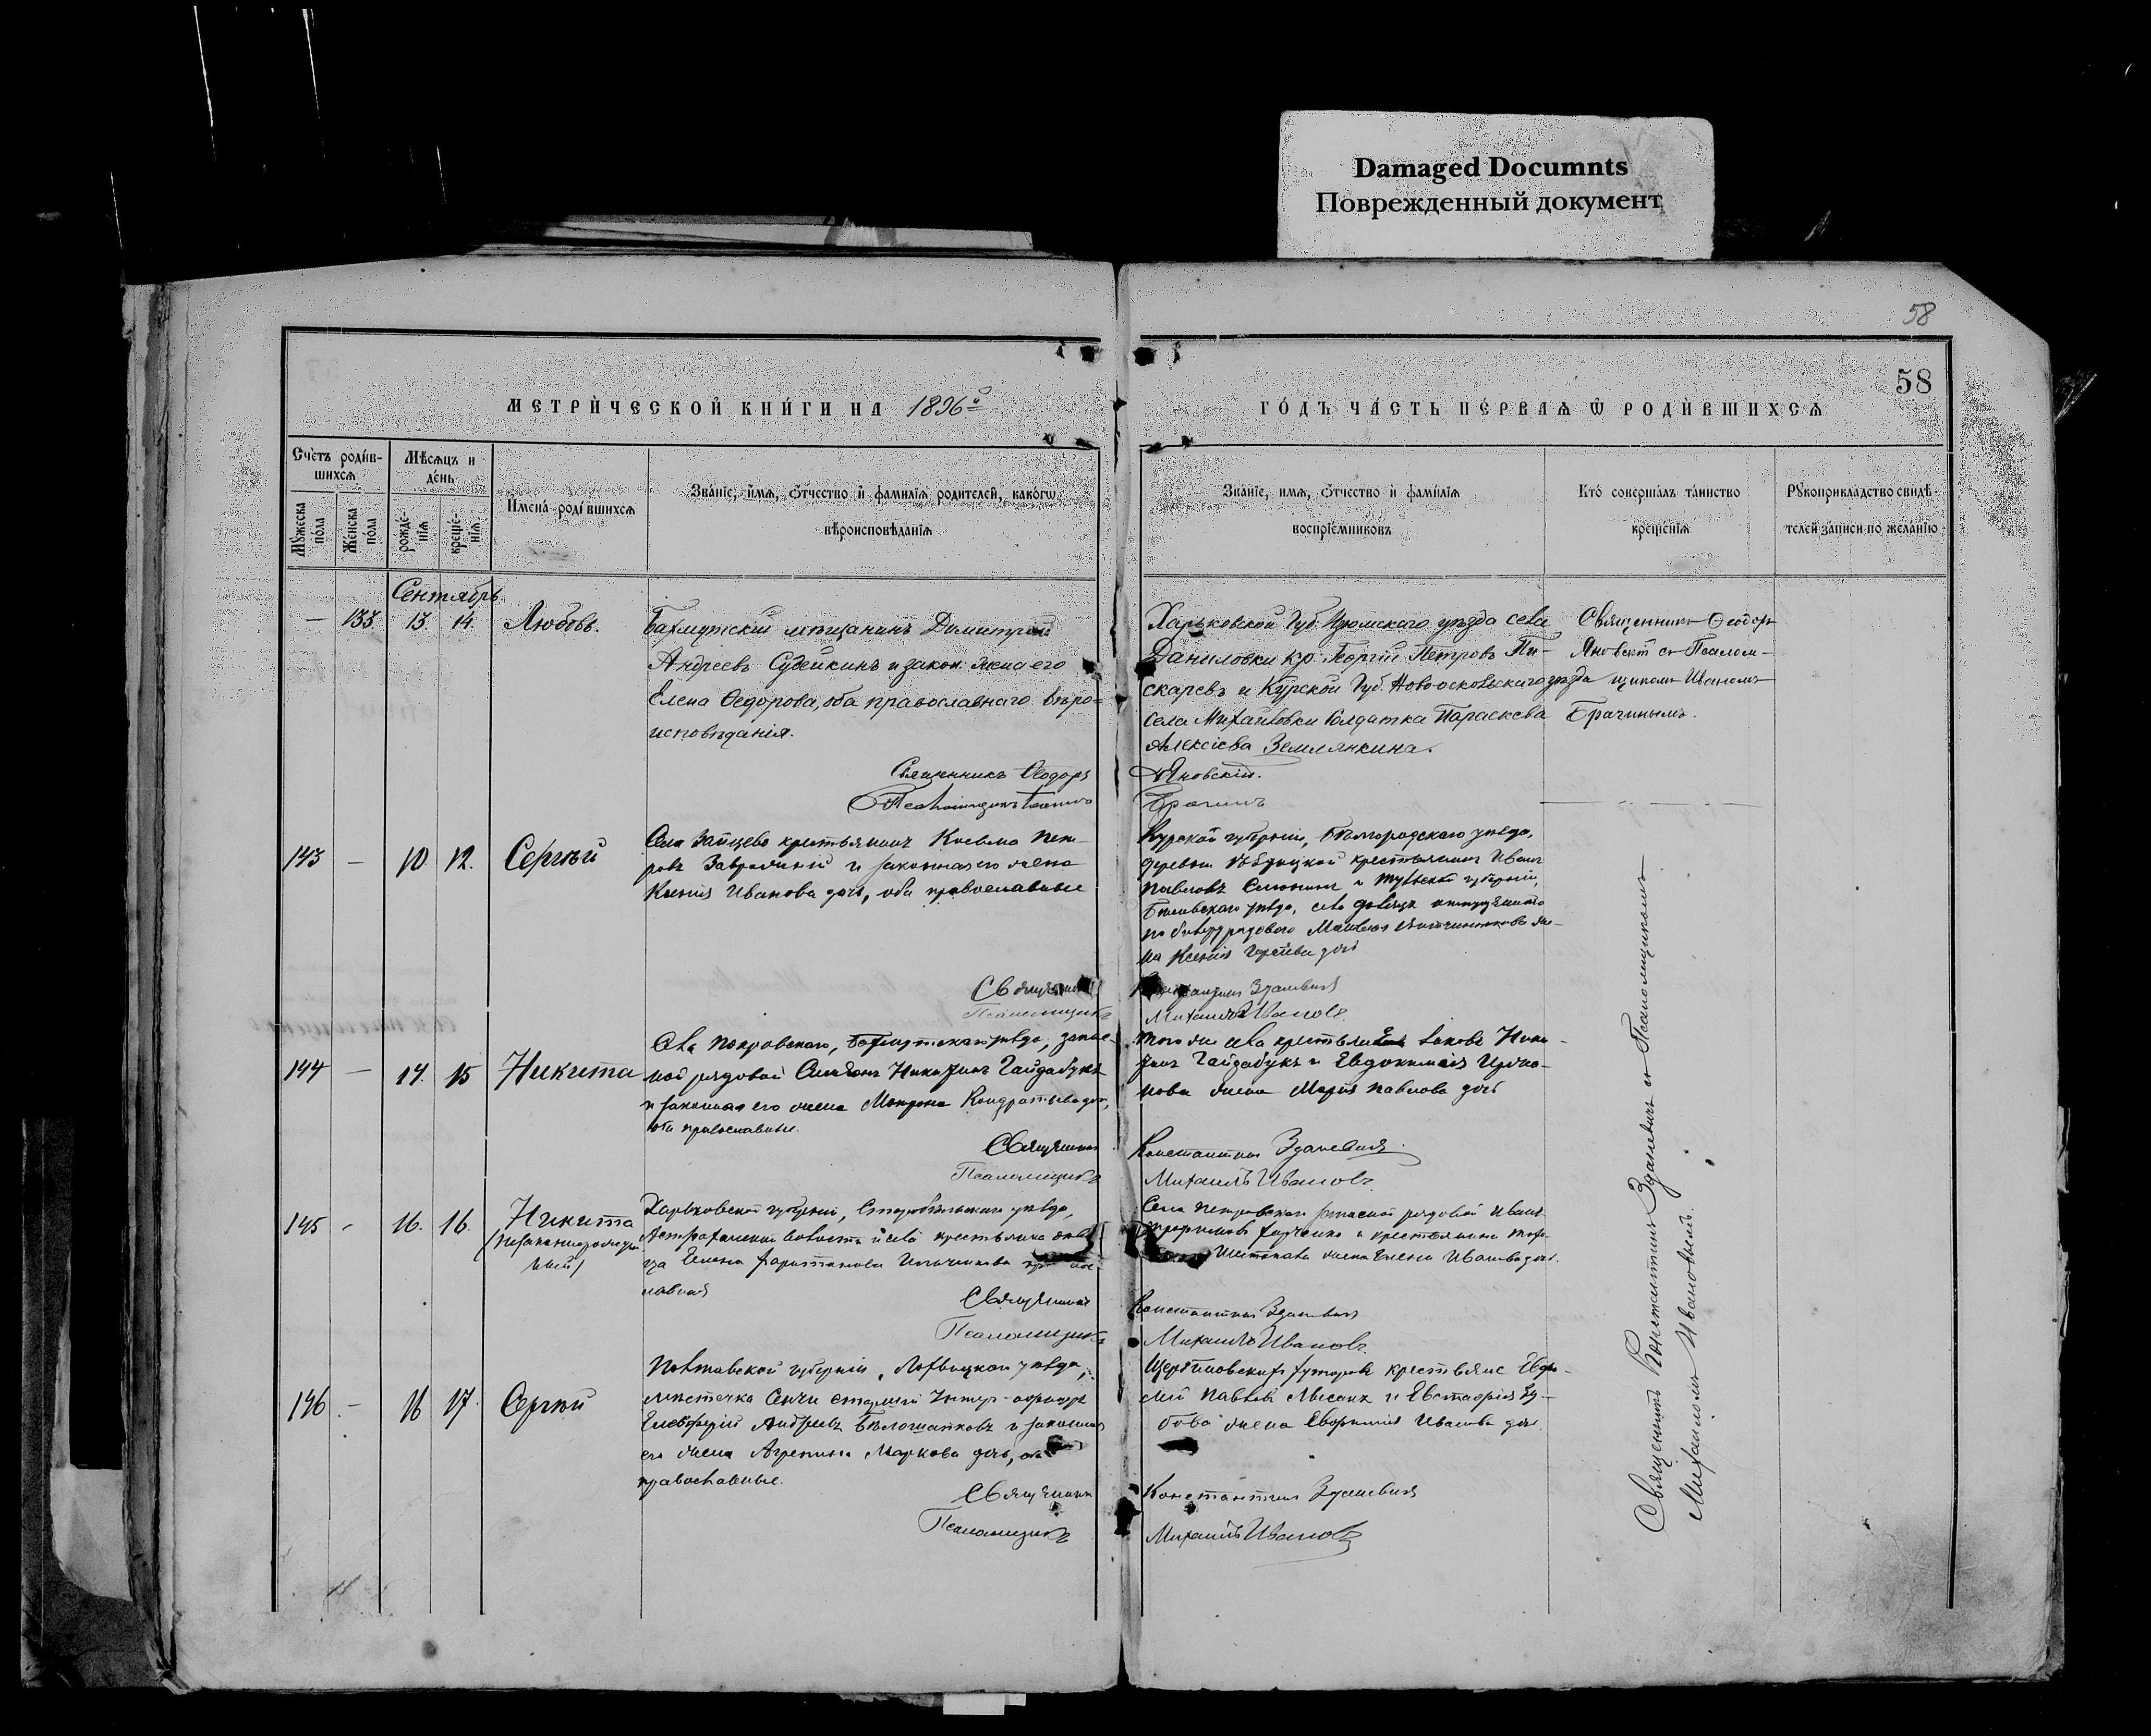 Damaged Documnts
Поврежденный документ
58
58
МЕТРИ́ЧЕСКОЙ КНИ́ГИ НА 1896й
ГО́ДЪ ЧА́СТЬ ПЕ́РВАѦ Ѿ РОДИ́ВШИХСѦ
Сче́тъ роди́в-
шихсѧ
Мꙋ́жеска
по́ла
Же́нска
по́ла
Мѣ́сѧцъ и
де́нь
рожде́-
нїѧ
креще́-
нїѧ
И҆мена́ роди́вшихсѧ
Зва́нїе, и҆́мѧ, ѻ҆́тчество и҆ фами́лїѧ роди́телей, како́гѡ
вѣроисповѣ́данїѧ
Зва́нїе, имѧ, ѻ҆́тчество и҆ фами́лїѧ
воспрїе́мниковъ
Кто̀ соверша́лъ та́инство
креще́нїѧ
Рꙋкоприкла́дство свидѣ́-
телей за́писи по жела́нїю
Сентябрь
— 135 13. 14. Любовь.
Бахмутскій мѣщанинъ Димитрій
Андреевъ Судейкинъ и закон. жена его
Елена Ѳедорова, оба православнаго вѣро=
исповѣданія.
Священникъ Ѳеодоръ
Псаломщикъ
Харьковской Губ. Изюмскаго уѣзда села
Даниловки кр. Георгій Петровъ Пи-
скаревъ и Курской Губ. Новооскольскаго уѣзда
села Михайловки Солдатка Параскева
Алексіева Землянкина.
Яновскій.
Брагинъ
Священникъ Ѳеодоръ
Яновскій съ Псалом-
щикомъ Иваномъ
Брагинымъ.
143 — 10 12. Сергѣй
Села Зайцева крестьянинъ Косьма Пет-
ровъ и законная его жена
Ксенія Иванова дочь, оба православные
Священникъ
Псаломщикъ
Курской губерніи, Бѣлгородскаго уѣзда,
деревни крестьянинъ Иванъ
Павловъ и Тульской губерніи,
уѣзда, села
рядового же-
на Ксенія дочь
Константинъ Зданевичъ
Михаилъ Ивановъ
144 — 14. 15 Никита
Села Покровскаго, Бахмутскаго уѣзда, запас-
ной рядовой Никитинъ Гайдабукъ
и законная его жена Кондратьева дочь,
оба православные.
Священникъ
Псаломщикъ
того же села Яковъ Ники-
тинъ Гайдабукъ и
нова жена Марія Павлова дочь
Константинъ Зданевичъ
Михаилъ Ивановъ
145 - 16. 16. Никита
(незаконнорожден-
ный)
Харьковской губерніи, Старобѣльскаго уѣзда,
волости и села крестьянка дѣви-
ца Елена Харитонова право-
славная
Священникъ
Псаломщикъ
Села Петровскаго запасной рядовой Иванъ
и крестьянина
жена Елена Иванова дочь.
Константинъ Зданевичъ
Михаилъ Ивановъ
146 - 16 17. Сергѣй
Полтавской губерніи, Лохвицкаго уѣзда,
мѣстечка Сенчи старшій Унтер-офицеръ
Елевферій Андреевъ и законная
его жена Агрепина Маркова дочь, оба
православные.
Священникъ
Псаломщикъ
хуторовъ крестьяне
Павловъ и Евстафія
жена Евфимія Иванова дочь
Константинъ Зданевичъ
Михаилъ Ивановъ
Священникъ Константинъ Зданевичъ съ Псаломщикомъ
Михаиломъ Ивановымъ.